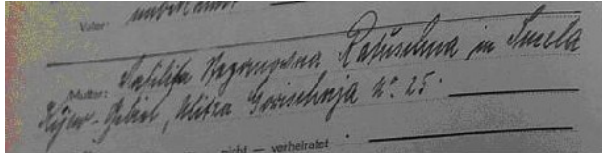 Vater: unbekannt.
Mutter: Natilifa Stepanowna Ratuschna in Smela
Kijew-Gebiet, Ulitza Gorschnaja N: 25.
nicht — verheiratet